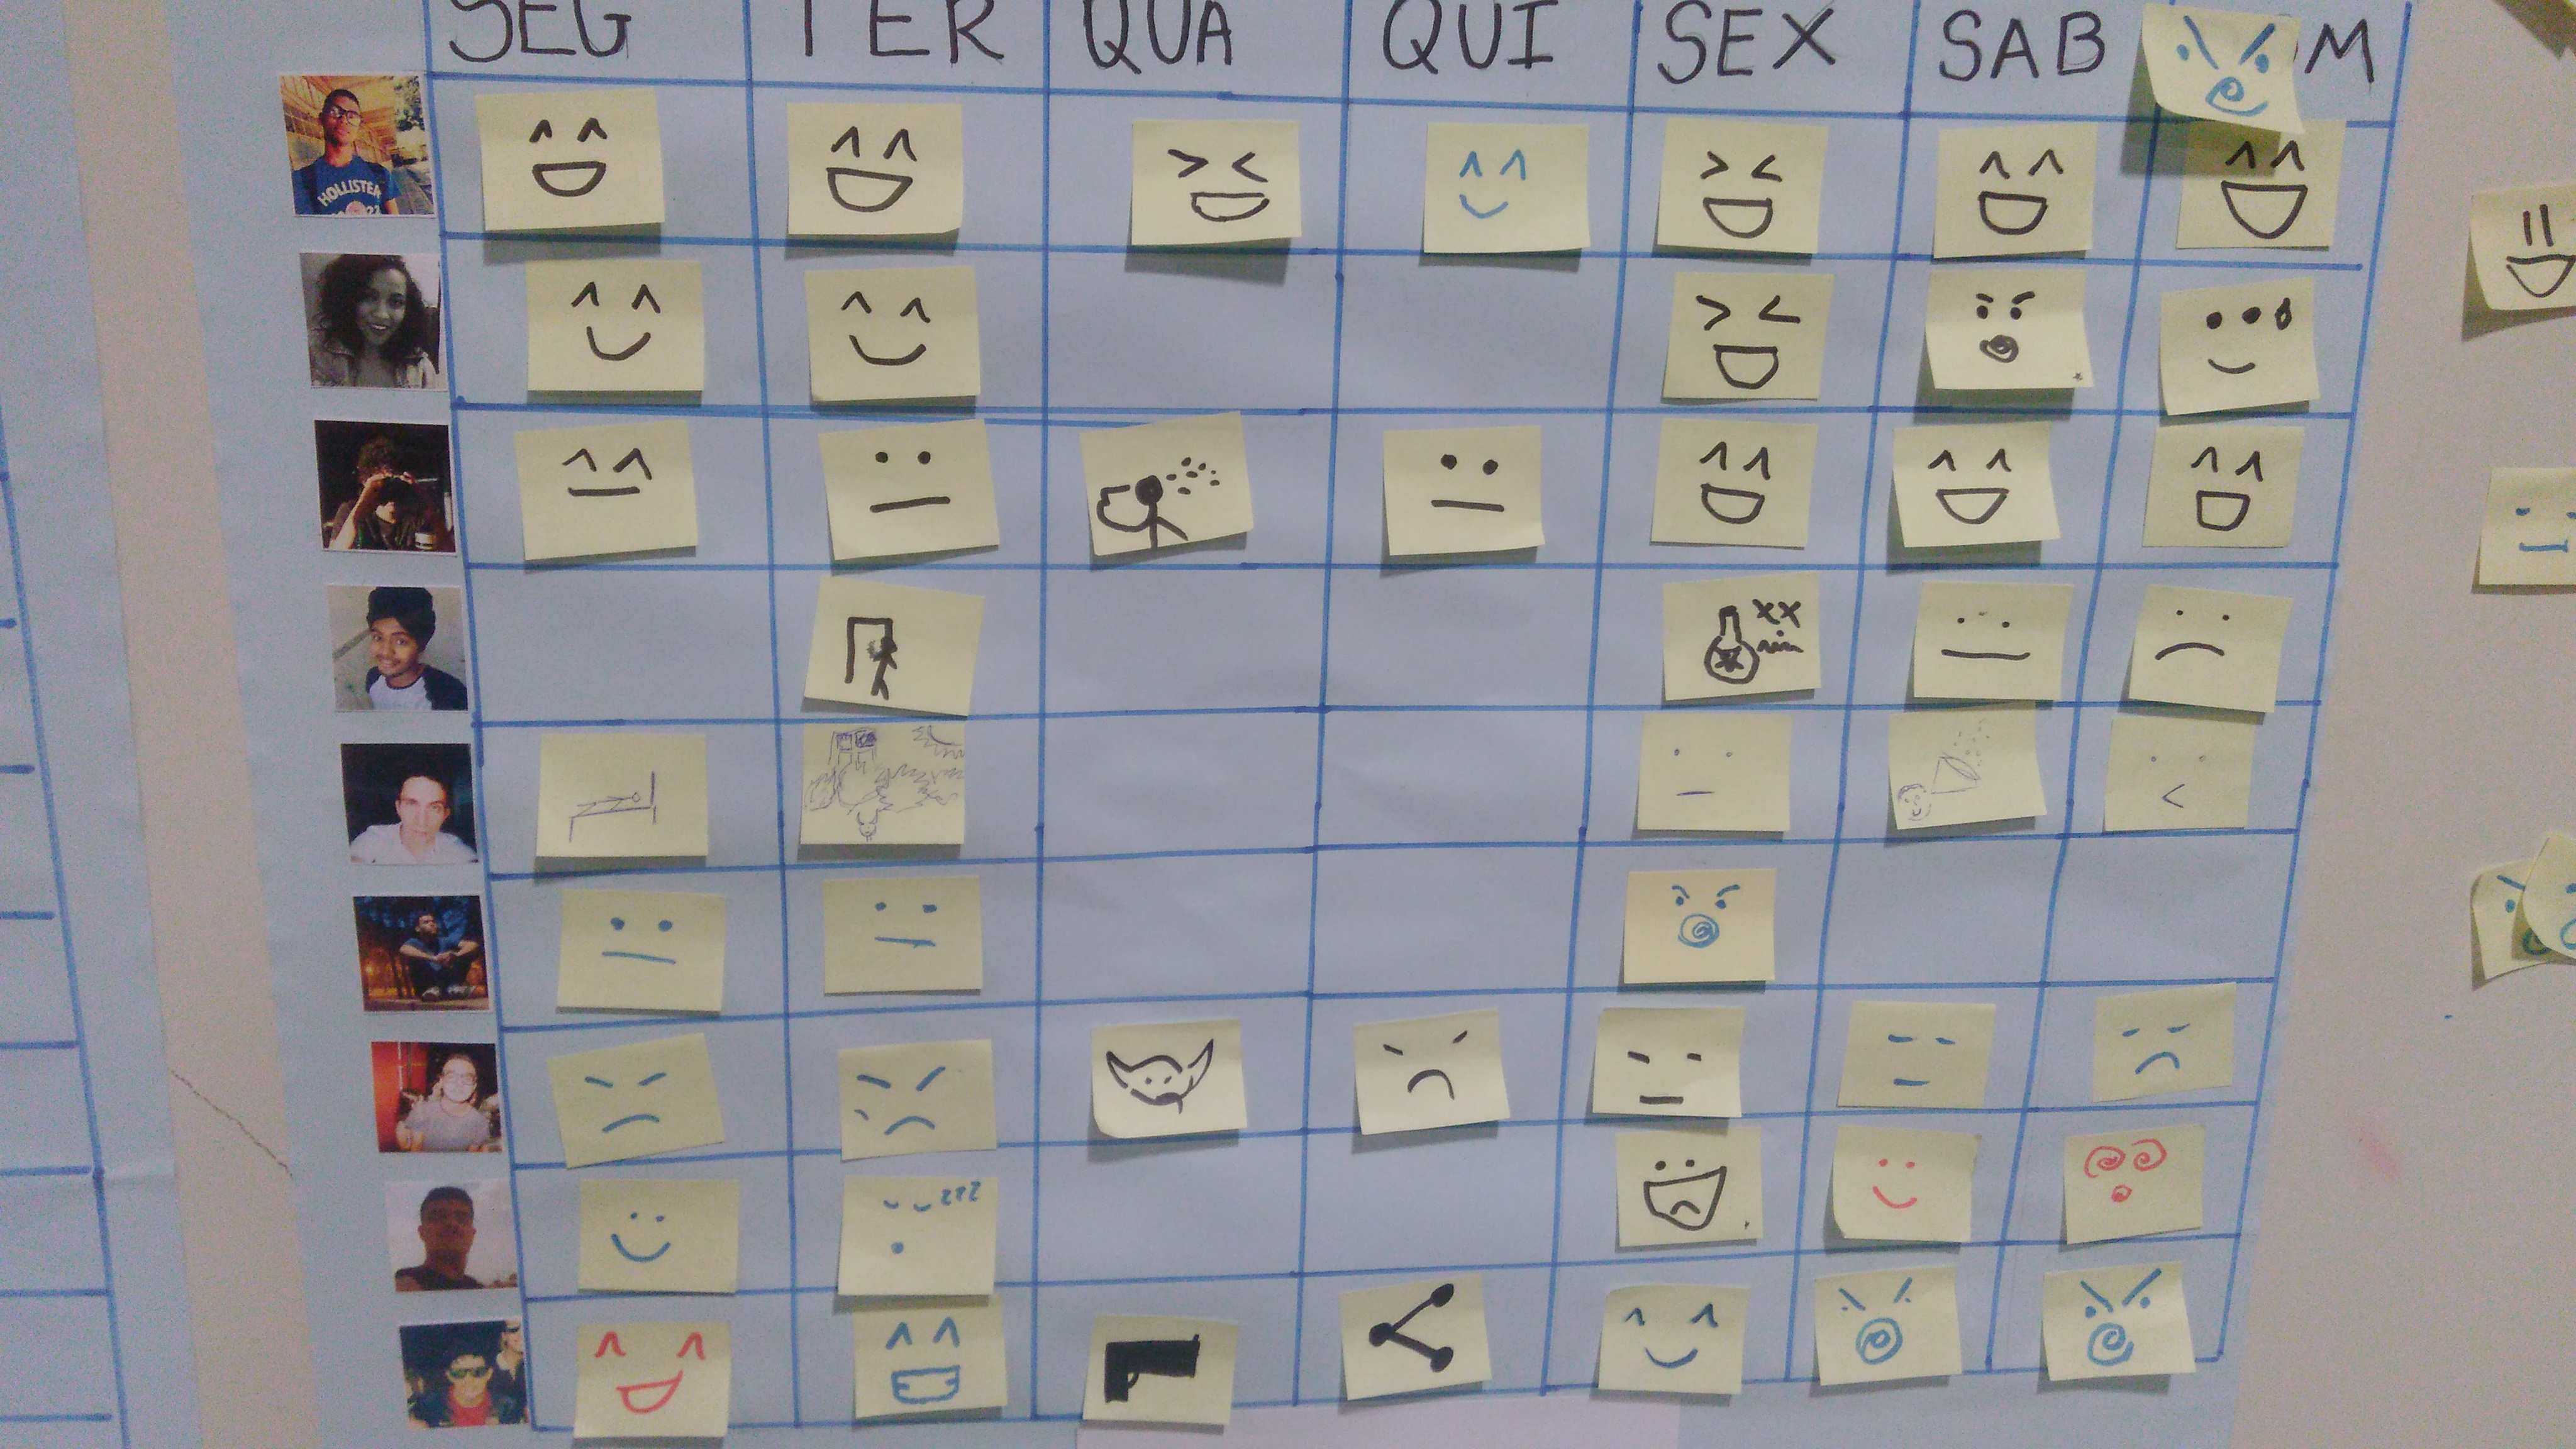 SEG TER QUA QUI SEX SAB M
HOLLISTER
xx
zzz